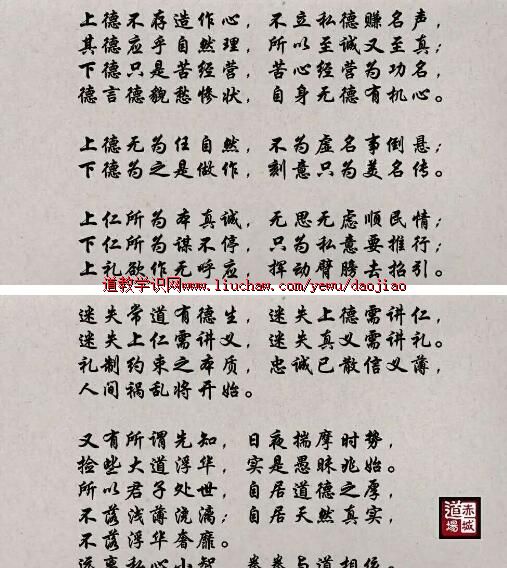 上德不存造作心，不立私德赚名声，
其德应乎自然理，所以至诚又至真；
下德只是苦经营，苦心经营为功名，
德言德貌愁惨状，自身无德有机心。
上德无为任自然，不为虚名事倒悬；
下德为之是做作，刻意只为美名传。
上仁所为本真诚，无思无虑顺民情；
下仁所为谋不停，只为私意要推行；
上礼欲作无呼应，挥动臂膀去招引。
道教学识网www.liuchaw.com/yewu/daojiao
迷失常道有德生，迷失上德需讲仁，
迷失上仁需讲义，迷失真义需讲礼。
礼制约束之本质，忠诚已散信义薄，
人间祸乱将开始。
又有所谓先知，日夜揣摩时势，
捡些大道浮华，实是愚昧兆始。
所以君子处世，自居道德之厚，
不落浅薄流漓；自居天然真实，
不落浮华奢靡。
远离私心小智，卷卷与道相依。
赤城道場